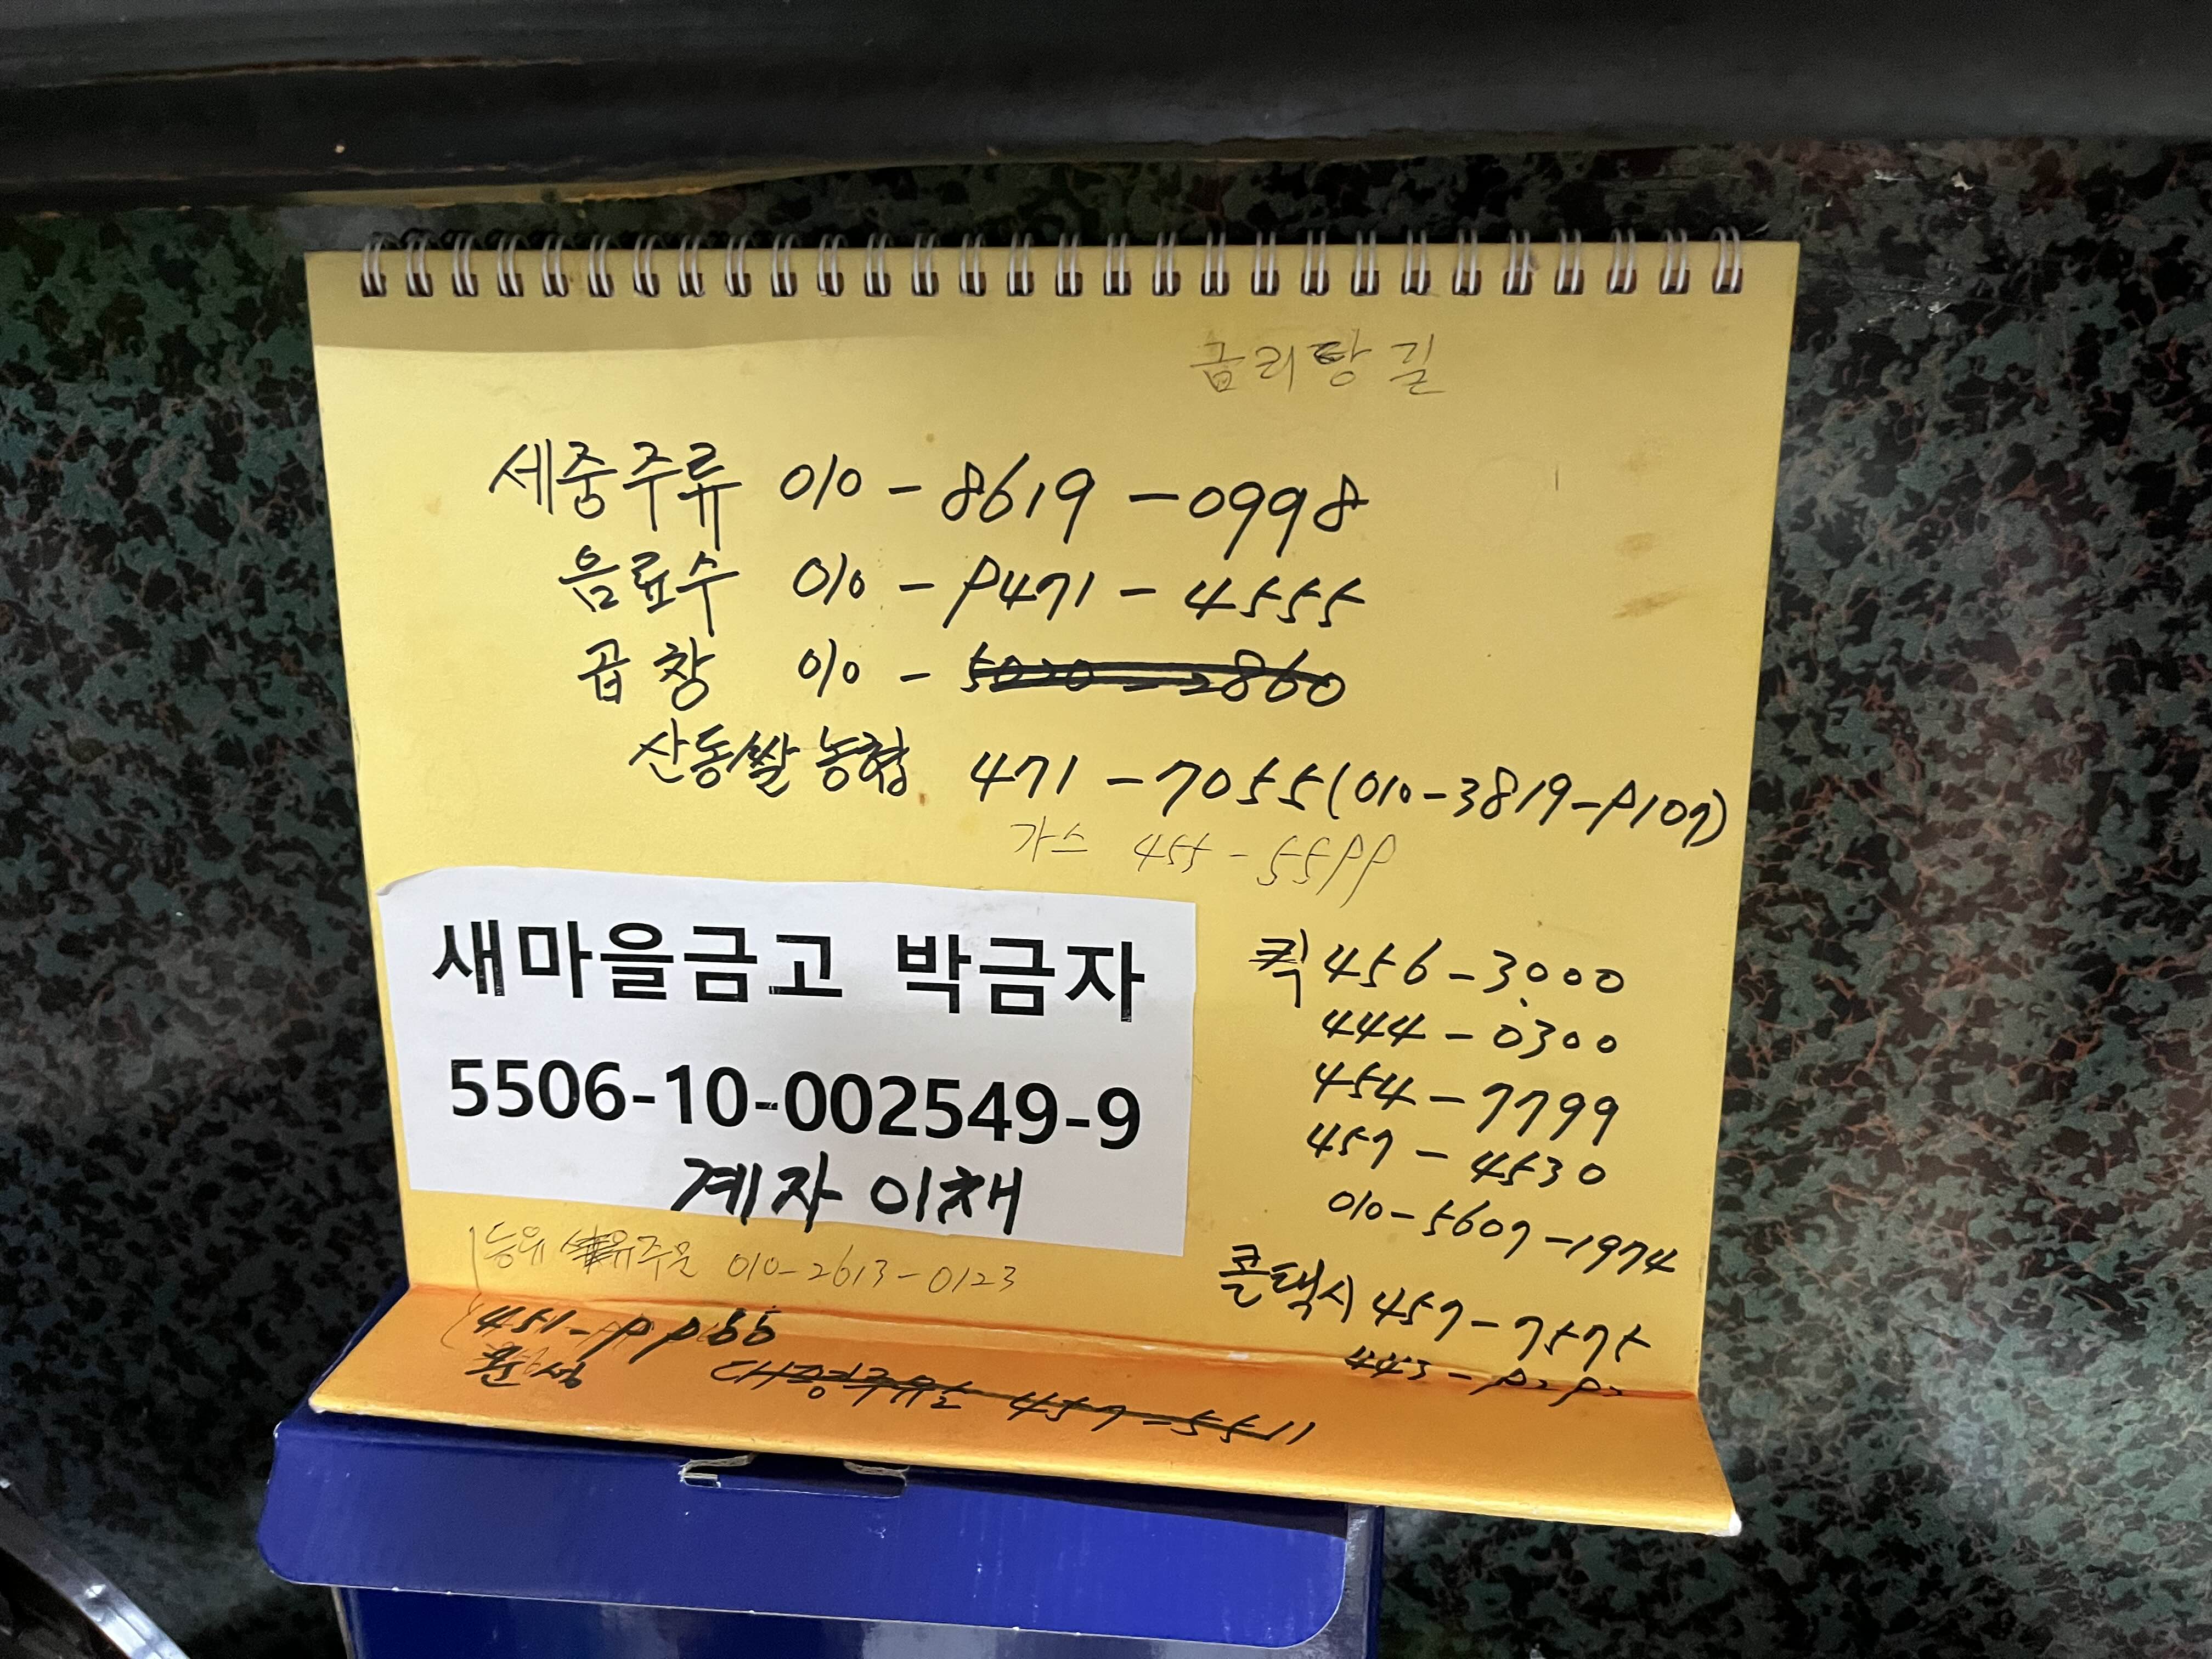 금리단길
세중주류 010-8619-0998
음료수 010-9471-4555
곱창 010-5020-2860
산동쌀 농협 471-7055(010-3819-9107)
가스 455-5599
새마을금고 박금자
5506-10-002549-9
계자 이채
퀵 456-3000
444-0300
454-7799
457-4530
010-5607-1974
콜택시 457-7575
443-9292
유주문 010-2613-0123
451-9966
대명주유소 457-5511